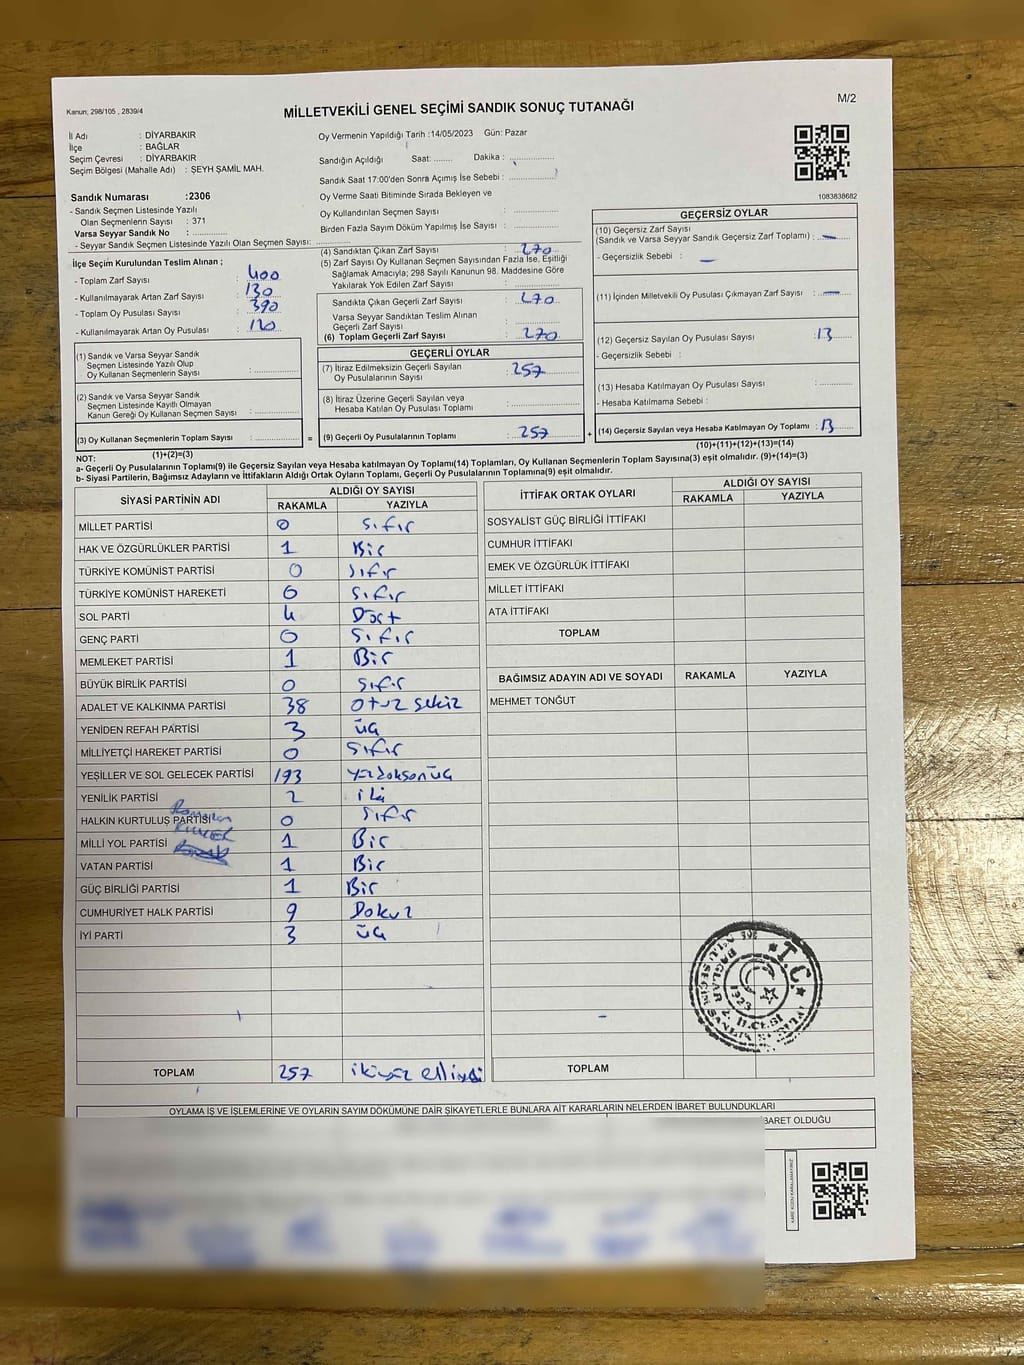 Kanun; 298/105 , 2839/4
MİLLETVEKİLİ GENEL SEÇİMİ SANDIK SONUÇ TUTANAĞI
M/2
İl Adı : DİYARBAKIR
İlçe : BAĞLAR
Seçim Çevresi : DİYARBAKIR
Seçim Bölgesi (Mahalle Adı) : ŞEYH ŞAMİL MAH.
Sandık Numarası :2306
- Sandık Seçmen Listesinde Yazılı
Olan Seçmenlerin Sayısı : 371
Varsa Seyyar Sandık No :
- Seyyar Sandık Seçmen Listesinde Yazılı Olan Seçmen Sayısı:
Oy Vermenin Yapıldığı Tarih :14/05/2023 Gün: Pazar
Sandığın Açıldığı Saat: Dakika :
Sandık Saat 17:00'den Sonra Açımış İse Sebebi :
Oy Verme Saati Bitiminde Sırada Bekleyen ve
Oy Kullandırılan Seçmen Sayısı :
Birden Fazla Sayım Döküm Yapılmış İse Sayısı :
1083838682
İlçe Seçim Kurulundan Teslim Alınan ;
- Toplam Zarf Sayısı : 400
- Kullanılmayarak Artan Zarf Sayısı : 130
- Toplam Oy Pusulası Sayısı : 390
- Kullanılmayarak Artan Oy Pusulası : 120
(1) Sandık ve Varsa Seyyar Sandık
Seçmen Listesinde Yazılı Olup
Oy Kullanan Seçmenlerin Sayısı :
(2) Sandık ve Varsa Seyyar Sandık
Seçmen Listesinde Kayıtlı Olmayan
Kanun Gereği Oy Kullanan Seçmen Sayısı :
(3) Oy Kullanan Seçmenlerin Toplam Sayısı :
(1)+(2)=(3)
(4) Sandıktan Çıkan Zarf Sayısı : 270
(5) Zarf Sayısı Oy Kullanan Seçmen Sayısından Fazla İse, Eşitliği
Sağlamak Amacıyla; 298 Sayılı Kanunun 98. Maddesine Göre
Yakılarak Yok Edilen Zarf Sayısı :
Sandıkta Çıkan Geçerli Zarf Sayısı : 270
Varsa Seyyar Sandıktan Teslim Alınan
Geçerli Zarf Sayısı :
(6) Toplam Geçerli Zarf Sayısı : 270
GEÇERLİ OYLAR
(7) İtiraz Edilmeksizin Geçerli Sayılan
Oy Pusulalarının Sayısı : 257
(8) İtiraz Üzerine Geçerli Sayılan veya
Hesaba Katılan Oy Pusulası Toplamı :
= (9) Geçerli Oy Pusulalarının Toplamı : 257
GEÇERSİZ OYLAR
(10) Geçersiz Zarf Sayısı
(Sandık ve Varsa Seyyar Sandık Geçersiz Zarf Toplamı) : —
- Geçersizlik Sebebi : —
(11) İçinden Milletvekili Oy Pusulası Çıkmayan Zarf Sayısı : —
(12) Geçersiz Sayılan Oy Pusulası Sayısı : 13
- Geçersizlik Sebebi :
(13) Hesaba Katılmayan Oy Pusulası Sayısı :
- Hesaba Katılmama Sebebi :
+ (14) Geçersiz Sayılan veya Hesaba Katılmayan Oy Toplamı : 13
(10)+(11)+(12)+(13)=(14)
NOT:
a- Geçerli Oy Pusulalarının Toplamı(9) ile Geçersiz Sayılan veya Hesaba katılmayan Oy Toplamı(14) Toplamları, Oy Kullanan Seçmenlerin Toplam Sayısına(3) eşit olmalıdır. (9)+(14)=(3)
b- Siyasi Partilerin, Bağımsız Adayların ve İttifakların Aldığı Ortak Oyların Toplamı, Geçerli Oy Pusulalarının Toplamına(9) eşit olmalıdır.
SİYASİ PARTİNİN ADI ALDIĞI OY SAYISI
RAKAMLA YAZIYLA
MİLLET PARTİSİ 0 Sıfır
HAK VE ÖZGÜRLÜKLER PARTİSİ 1 Bir
TÜRKİYE KOMÜNİST PARTİSİ 0 Sıfır
TÜRKİYE KOMÜNİST HAREKETİ 0 Sıfır
SOL PARTİ 4 Dört
GENÇ PARTİ 0 Sıfır
MEMLEKET PARTİSİ 1 Bir
BÜYÜK BİRLİK PARTİSİ 0 Sıfır
ADALET VE KALKINMA PARTİSİ 38 Otuz Sekiz
YENİDEN REFAH PARTİSİ 3 üç
MİLLİYETÇİ HAREKET PARTİSİ 0 Sıfır
YEŞİLLER VE SOL GELECEK PARTİSİ 193 yüzdoksanüç
YENİLİK PARTİSİ 2 iki
HALKIN KURTULUŞ PARTİSİ 0 Sıfır
MİLLİ YOL PARTİSİ 1 Bir
VATAN PARTİSİ 1 Bir
GÜÇ BİRLİĞİ PARTİSİ 1 Bir
CUMHURİYET HALK PARTİSİ 9 Dokuz
İYİ PARTİ 3 üç
TOPLAM 257 ikiyüz elliyedi
İTTİFAK ORTAK OYLARI ALDIĞI OY SAYISI
RAKAMLA YAZIYLA
SOSYALİST GÜÇ BİRLİĞİ İTTİFAKI
CUMHUR İTTİFAKI
EMEK VE ÖZGÜRLÜK İTTİFAKI
MİLLET İTTİFAKI
ATA İTTİFAKI
TOPLAM
BAĞIMSIZ ADAYIN ADI VE SOYADI RAKAMLA YAZIYLA
MEHMET TONĞUT
T.C.
BAĞLAR 2. İLÇESİ
1923
TOPLAM
OYLAMA İŞ VE İŞLEMLERİNE VE OYLARIN SAYIM DÖKÜMÜNE DAİR ŞİKAYETLERLE BUNLARA AİT KARARLARIN NELERDEN İBARET BULUNDUKLARI
BARET OLDUĞU